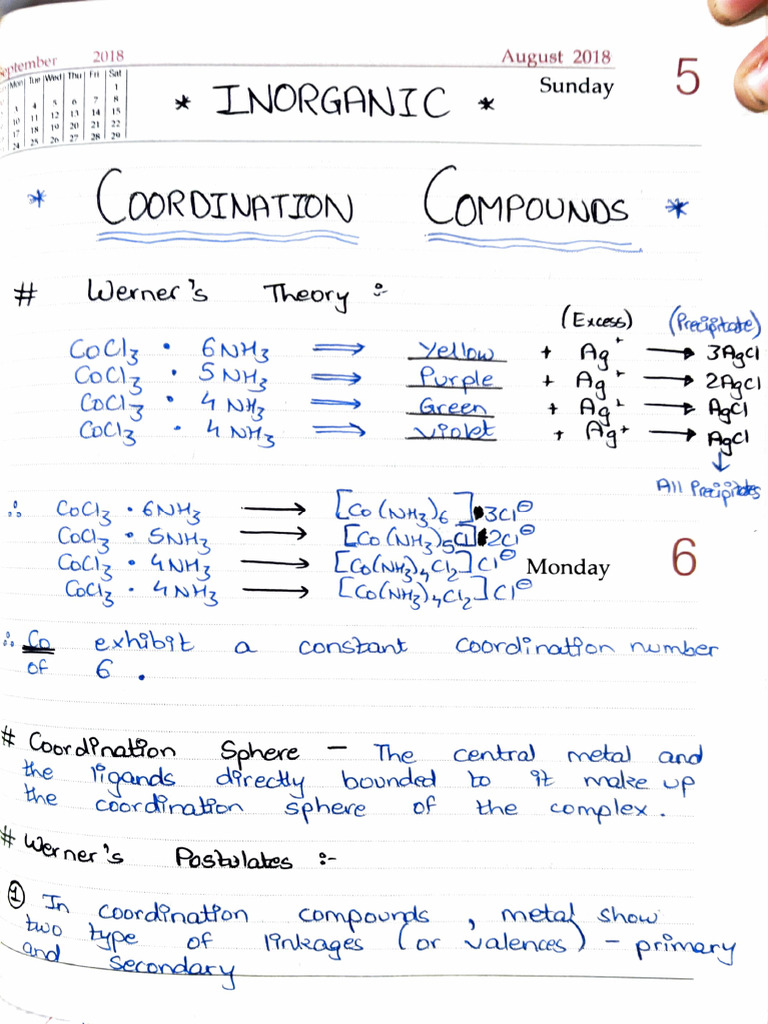 September 2018
August 2018
5
Mon Tue Wed Thu Fri Sat
1
3 4 5 6 7 8
10 11 12 13 14 15
17 18 19 20 21 22
24 25 26 27 28 29
Sunday
* INORGANIC *
* COORDINATION COMPOUNDS *
# Werner's Theory :-
(Excess) (Precipitate)
CoCl₃ • 6NH₃ ⟹ Yellow + Ag⁺ ⟶ 3AgCl
CoCl₃ • 5NH₃ ⟹ Purple + Ag⁺ ⟶ 2AgCl
CoCl₃ • 4NH₃ ⟹ Green + Ag⁺ ⟶ AgCl
CoCl₃ • 4NH₃ ⟹ Violet + Ag⁺ ⟶ AgCl
↓
All Precipitates
∴ CoCl₃ • 6NH₃ ⟶ [Co(NH₃)₆]3Cl⊖
CoCl₃ • 5NH₃ ⟶ [Co(NH₃)₅Cl]2Cl⊖
CoCl₃ • 4NH₃ ⟶ [Co(NH₃)₄Cl₂]Cl⊖
CoCl₃ • 4NH₃ ⟶ [Co(NH₃)₄Cl₂]Cl⊖
Monday 6
∴ Co exhibit a constant coordination number
of 6 .
# Coordination Sphere – The central metal and
the ligands directly bounded to it make up
the coordination sphere of the complex.
# Werner's Postulates :-
① In coordination compounds , metal show
two type of linkages (or valences) – primary
and secondary